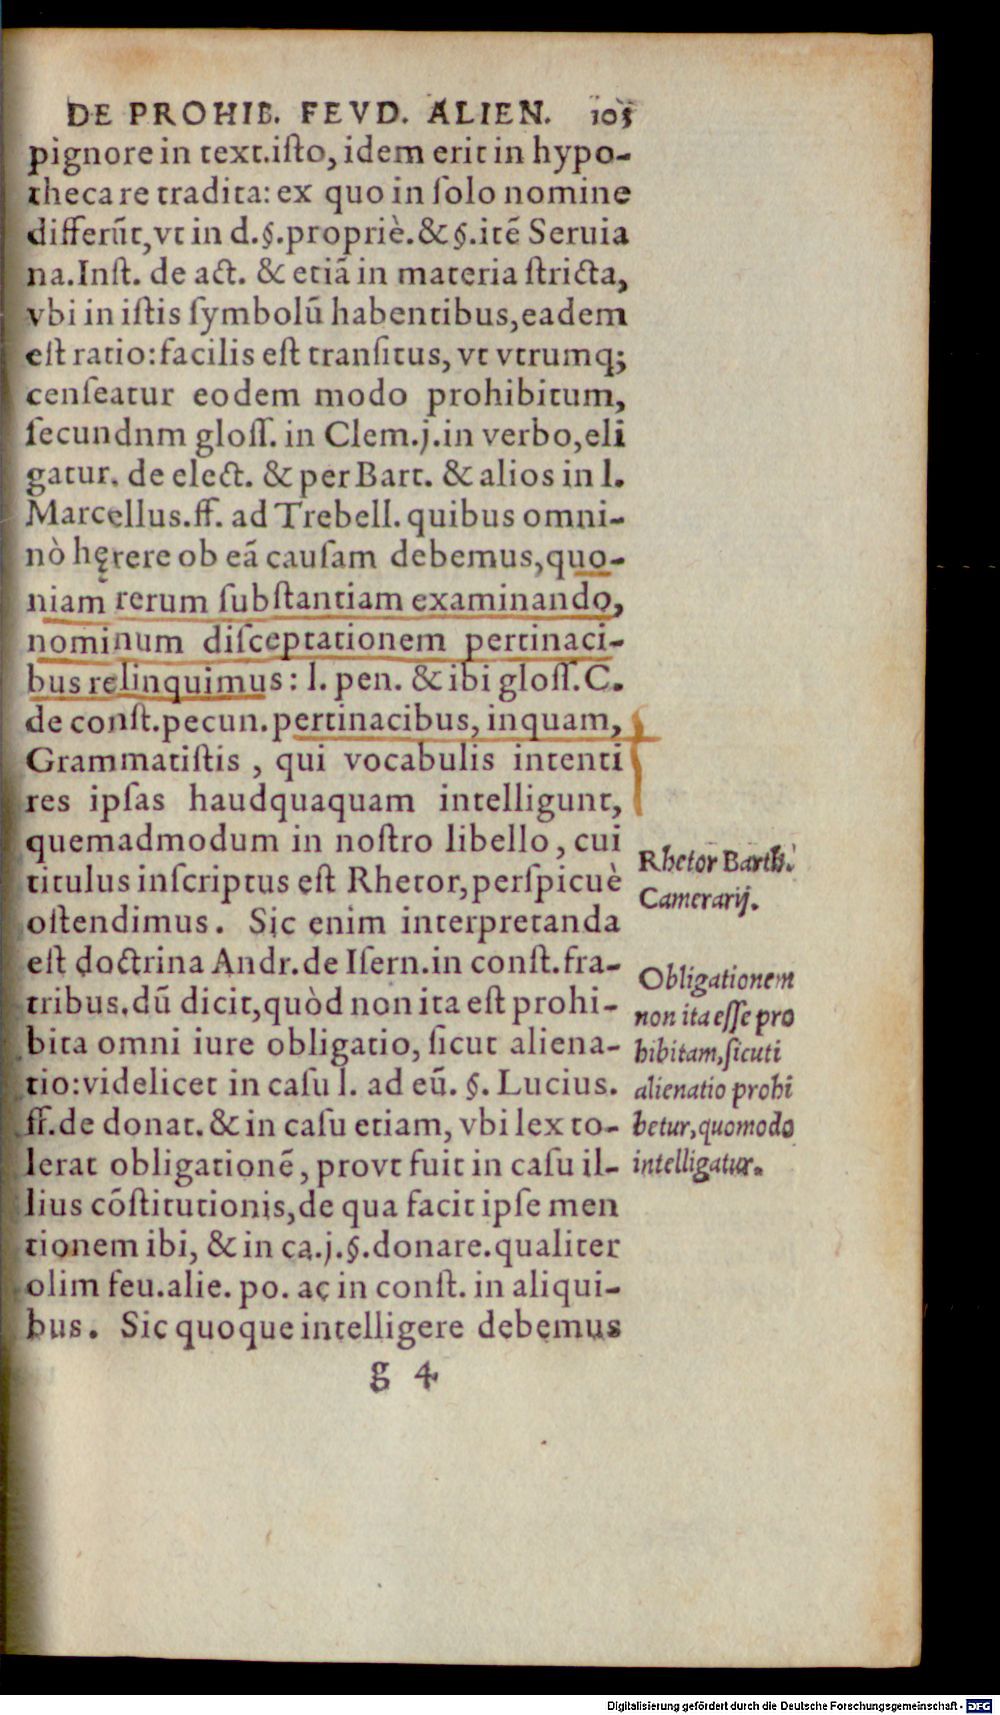 DE PROHIB. FEVD. ALIEN. 105
pignore in text.iſto, idem erit in hypo-
theca re tradita: ex quo in ſolo nomine
differũt, vt in d.§.propriè.&§.itẽ Seruia
na.Inſt. de act. & etiã in materia ſtricta,
vbi in iſtis ſymbolũ habentibus,eadem
eſt ratio:facilis eſt tranſitus, vt vtrumq;
cenſeatur eodem modo prohibitum,
ſecundnm gloſſ. in Clem.j.in verbo,eli
gatur. de elect. & per Bart. & alios in l.
Marcellus.ff. ad Trebell. quibus omni-
nò hęrere ob eã cauſam debemus,quo-
niam rerum ſubſtantiam examinando,
nominum diſceptationem pertinaci-
bus relinquimus: l. pen. & ibi gloſſ.C.
de conſt.pecun.pertinacibus, inquam,
Grammatiſtis , qui vocabulis intenti
res ipſas haudquaquam intelligunt,
quemadmodum in noſtro libello, cui
titulus inſcriptus eſt Rhetor,perſpicuè
oſtendimus. Sic enim interpretanda
eſt doctrina Andr.de Iſern.in conſt.fra-
tribus.dũ dicit,quòd non ita eſt prohi-
bita omni iure obligatio, ſicut aliena-
tio:videlicet in caſu l. ad eũ. §. Lucius.
ff.de donat.& in caſu etiam, vbi lex to-
lerat obligationẽ, provt fuit in caſu il-
lius cõſtitutionis,de qua facit ipſe men
tionem ibi, & in ca.j.§.donare.qualiter
olim feu.alie. po. ac in conſt. in aliqui-
bus. Sic quoque intelligere debemus
g 4
Rhetor Barth.
Camerarij.
Obligationem
non ita eſſe pro
hibitam,ſicuti
alienatio prohi
betur,quomodo
intelligatur.
Digitalisierung gefördert durch die Deutsche Forschungsgemeinschaft - DFG